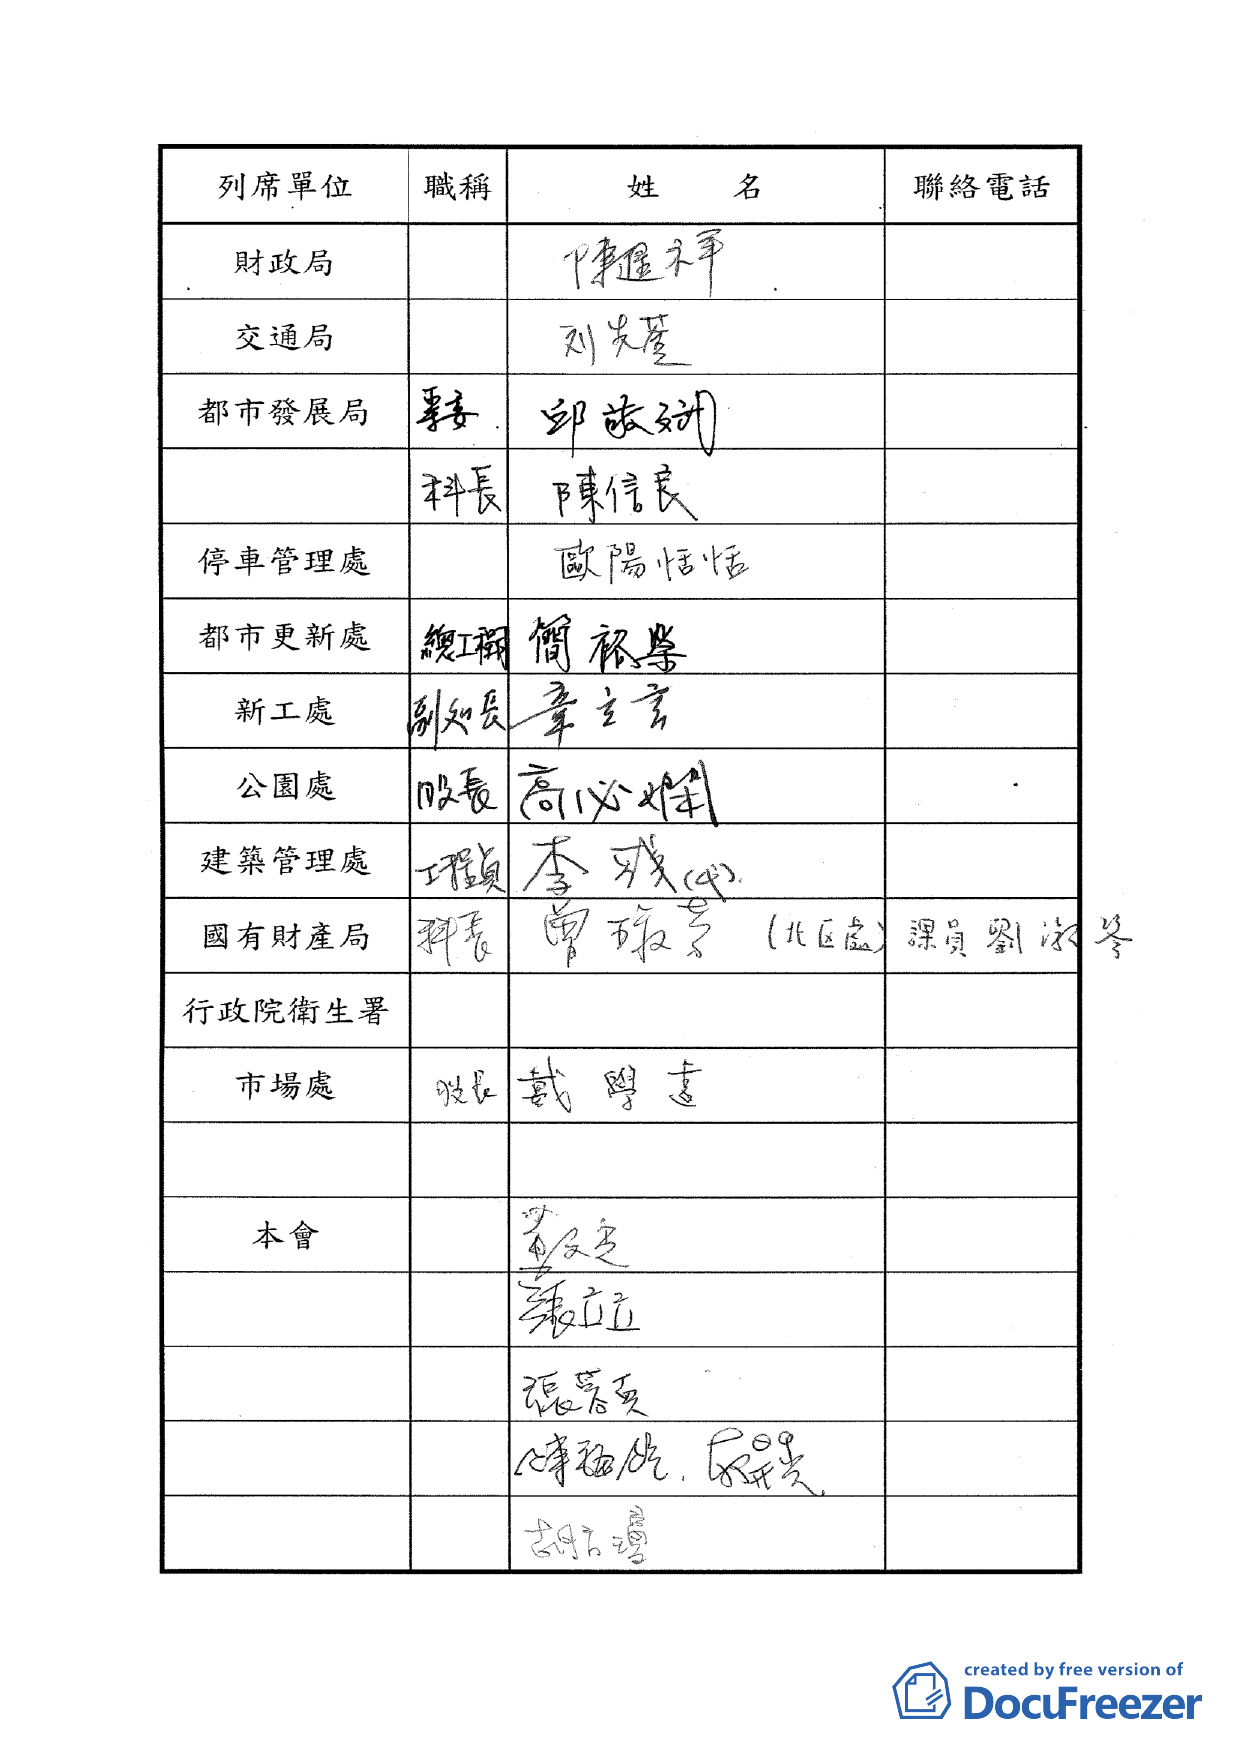 列席單位 職稱 姓 名 聯絡電話
財政局 陳進祥
交通局
都市發展局 邱敬斌
科長 陳信良
停車管理處 歐陽恬恬
都市更新處 總工程司 簡裕榮
新工處 章立言
公園處 股長 高必嫻
建築管理處 工程員 李 (代)
國有財產局 科長 曾 (北区處) 課員 劉淑
行政院衛生署
市場處 股長 戴學遠
本會
張立立
張蓉真
陳福
胡
created by free version of
DocuFreezer